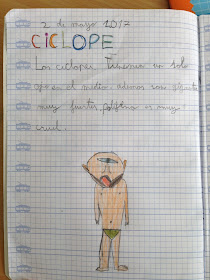 2 de mayo 2017
CICLOPE
Los ciclopes tienen un solo
ojo en el medio. ademas son gigantes
muy fuertes, polifemo es muy
cruel.